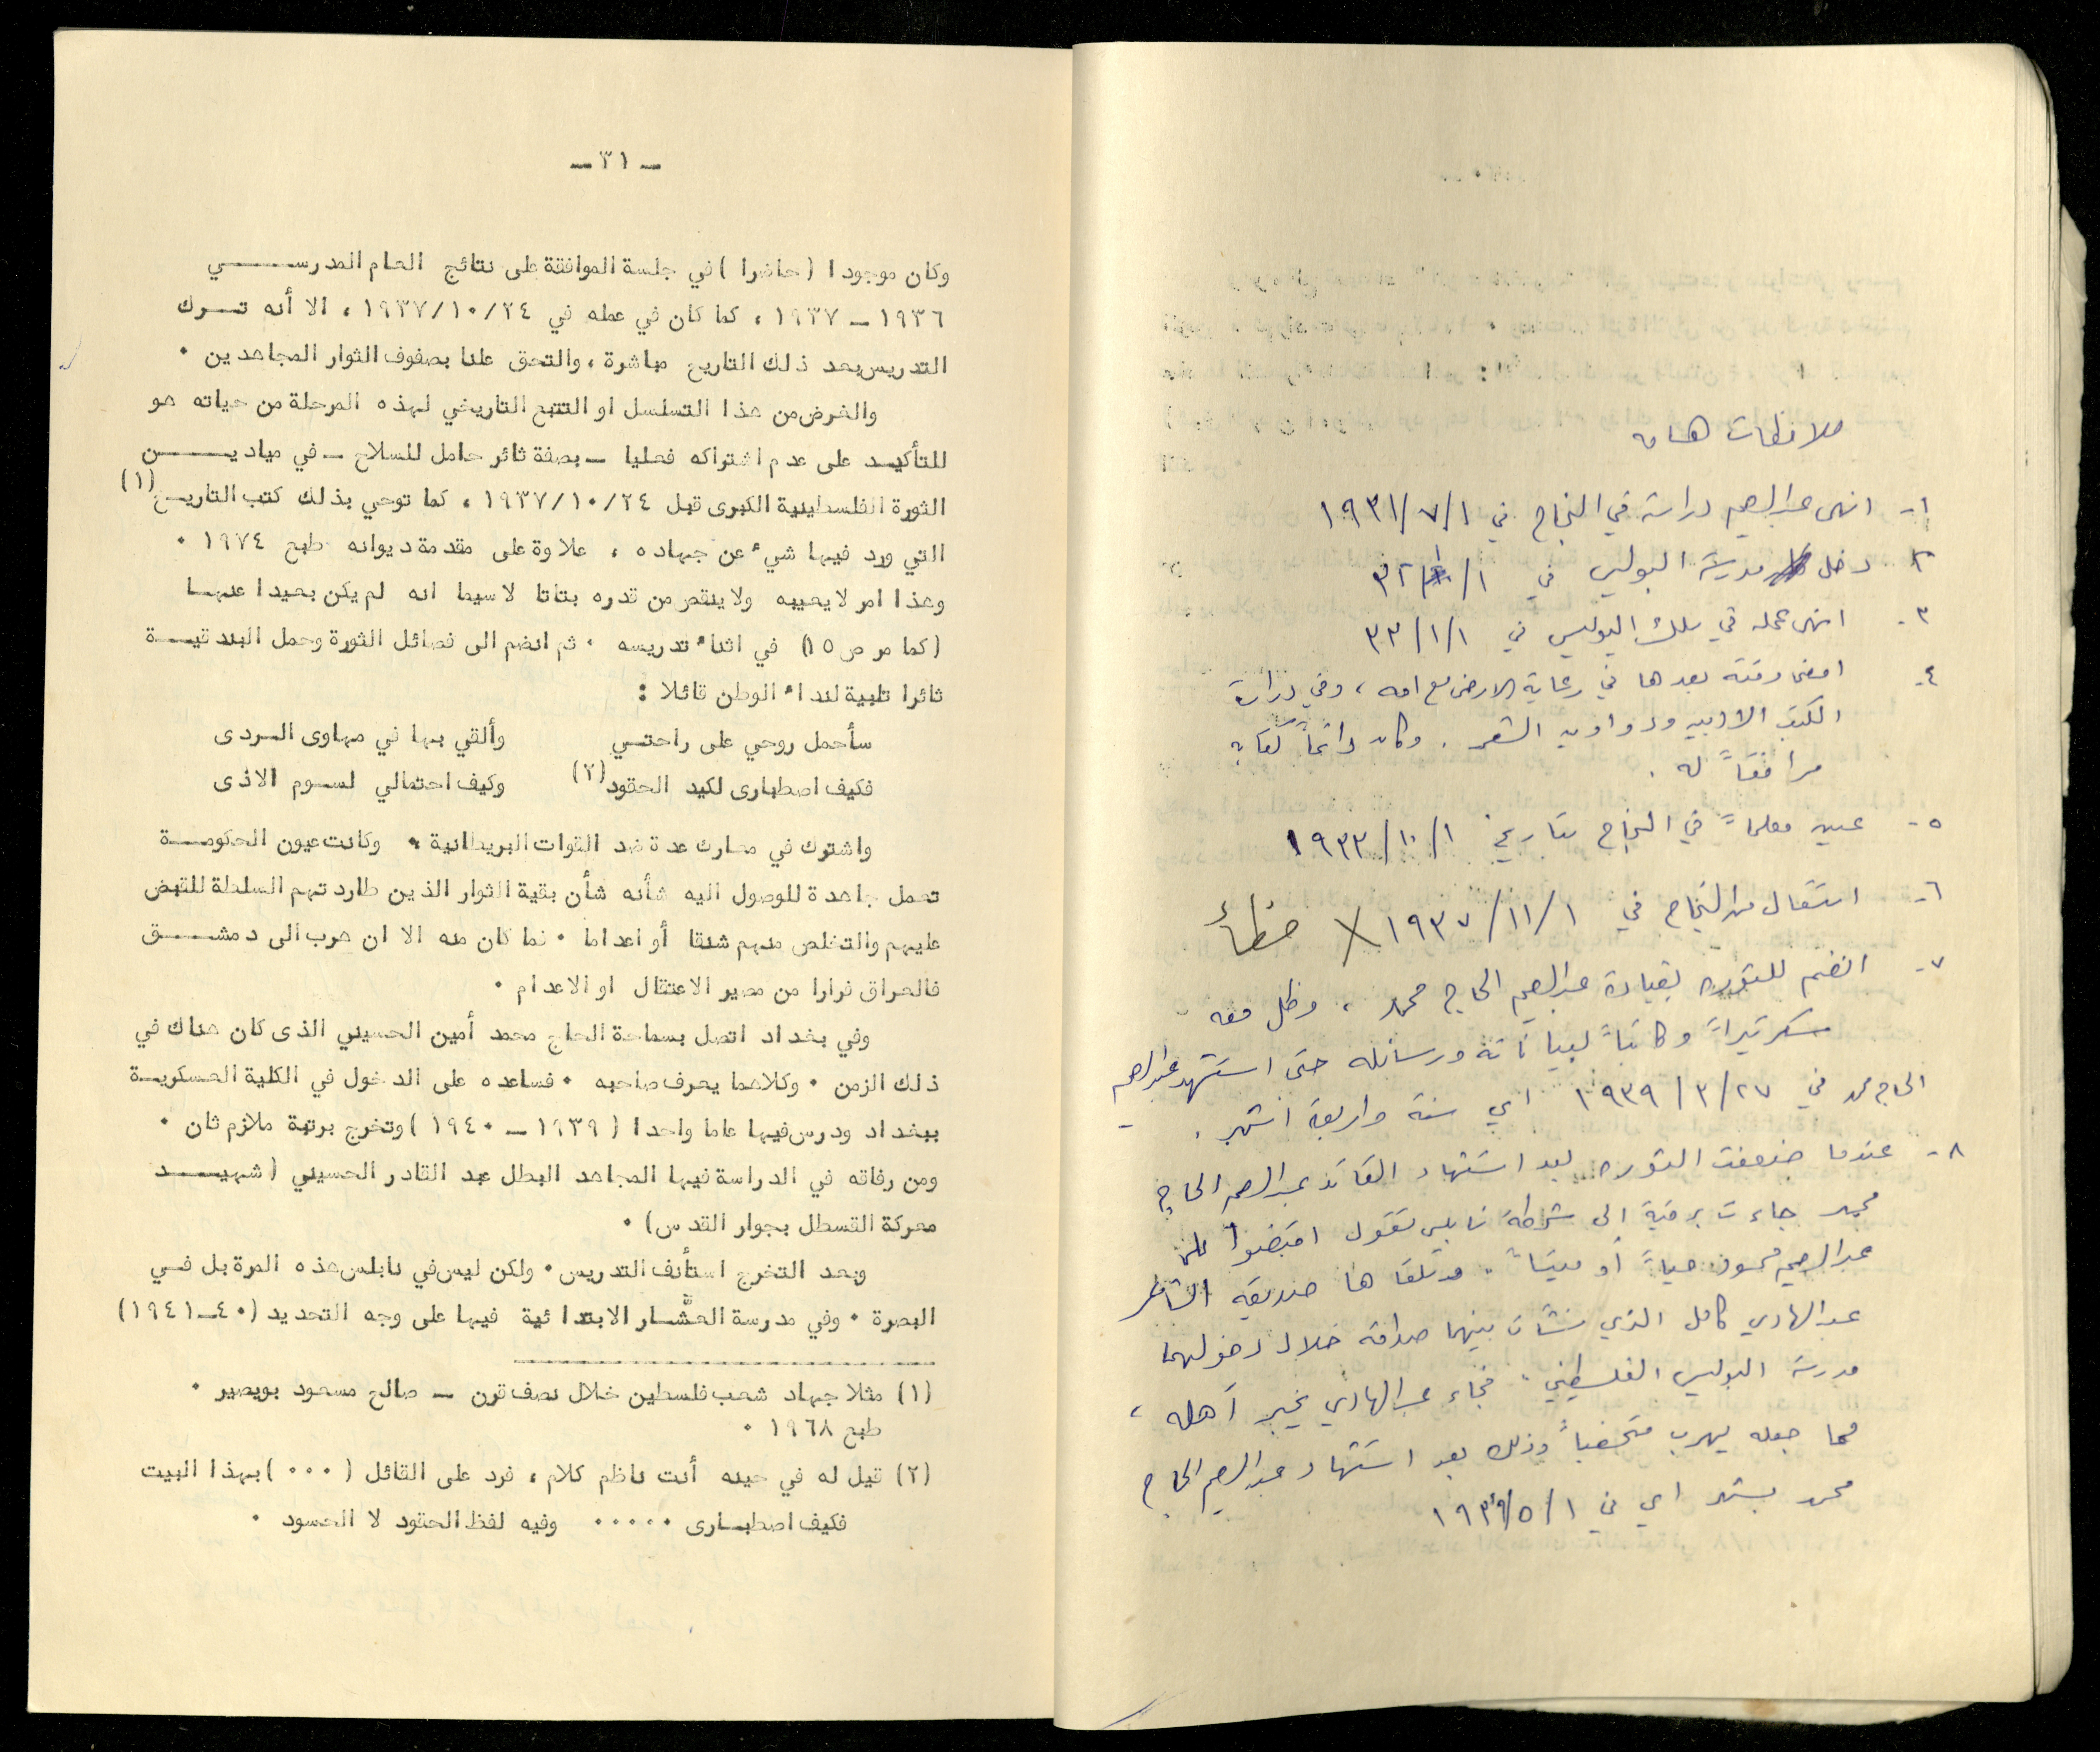 ملاحظات هامه
١- انهى عبدالرحيم دراسته في النجاح في ١/٧/١٩٣١
٢- دخل مدرسة البوليس في ١/١/٣٢
٣- انهى عمله في سلك البوليس في ١/١/٣٣
٤- امضى وقته بعدها في رعاية الارض مع امه ، وفي دراسة
الكتب الادبيه ودواوين الشعر . وكان دائماً كتابه
مرافقاً له .
٥- عين معلماً في النجاح بتاريخ ١/١٠/١٩٣٣
٦- استقال من النجاح في ١/١١/١٩٣٧ X خطأ
٧- انضم للثوره بقيادة عبدالرحيم الحاج محمد ، وظل معه
سكرتيراً وكاتباً لبياناته ورسائله حتى استشهد عبدالرحيم
الحاج محمد في ٢٧/٣/١٩٣٩ اي سنة واربعة اشهر .
٨- عندما ضعفت الثوره بعد استشهاد القائد عبدالرحيم الحاج
محمد جاءت برقية الى شرطة نابلس تقول اقبضوا على
عبدالرحيم محمود حياً أو ميتاً . فتلقاها صديقه الشاعر
عبدالهادي كامل الذي نشأت بينهما صداقه خلال دخولهما
مدرسة البوليس الفلسطيني . فجاء عبدالهادي يخبر أهله ،
مما جعله يهرب متخفياً وذلك بعد استشهاد عبدالرحيم الحاج
محمد بشهر اي في ١/٥/١٩٣٩
ـ ٣١ ـ
وكان موجودا ( حاضرا ) في جلسة الموافقة على نتائج العام المدرسي
١٩٣٦ ـ ١٩٣٧ ، كما كان في عمله في ٢٤/١٠/١٩٣٧ ، الا أنه ترك
التدريس بعد ذلك التاريخ مباشرة ، والتحق علنا بصفوف الثوار المجاهدين ٠
والغرض من هذا التسلسل او التتبع التاريخي لهذه المرحلة من حياته هو
للتأكيد على عدم اشتراكه فعليا ـ بصفة ثائر حامل للسلاح ـ في ميادين
الثورة الفلسطينية الكبرى قبل ٢٤/١٠/١٩٣٧ ، كما توحي بذلك كتب التاريخ (١)
التي ورد فيها شيء عن جهاده ، علاوة على مقدمة ديوانه طبع ١٩٧٤ ٠
وهذا امر لا يعيبه ولا ينقص من قدره بتاتا لا سيما انه لم يكن بعيدا عنها
( كما مر ص ١٥ ) في اثناء تدريسه ٠ ثم انضم الى فصائل الثورة وحمل البندقية
ثائرا تلبية لنداء الوطن قائلا :
سأحمل روحي على راحتي وألقي بها في مهاوى الردى
فكيف اصطبارى لكيد الحقود (٢) وكيف احتمالي لسوم الاذى
واشترك في معارك عدة ضد القوات البريطانية ، وكانت عيون الحكومة
تعمل جاهدة للوصول اليه شأنه شأن بقية الثوار الذين طاردتهم السلطة للقبض
عليهم والتخلص منهم شنقا أو اعداما ٠ فما كان منه الا ان هرب الى دمشق
فالعراق فرارا من مصير الاعتقال او الاعدام ٠
وفي بغداد اتصل بسماحة الحاج محمد أمين الحسيني الذى كان هناك في
ذلك الزمن ٠ وكلاهما يعرف صاحبه ٠ فساعده على الدخول في الكلية العسكرية
ببغداد ودرس فيها عاما واحدا ( ١٩٣٩ ـ ١٩٤٠ ) وتخرج برتبة ملازم ثان ٠
ومن رفاقه في الدراسة فيها المجاهد البطل عبد القادر الحسيني ( شهيد
معركة القسطل بجوار القدس ) ٠
وبعد التخرج استأنف التدريس ٠ ولكن ليس في نابلس هذه المرة بل في
البصرة ٠ وفي مدرسة العشّار الابتدائية فيها على وجه التحديد ( ٤٠ـ١٩٤١ )
(١) مثلا جهاد شعب فلسطين خلال نصف قرن ـ صالح مسعود بويصير ٠
طبع ١٩٦٨ ٠
(٢) قيل له في حينه أنت ناظم كلام ، فرد على القائل ( ٠٠٠ ) بهذا البيت
فكيف اصطبارى ٠٠٠٠٠ وفيه لفظ الحقود لا الحسود ٠